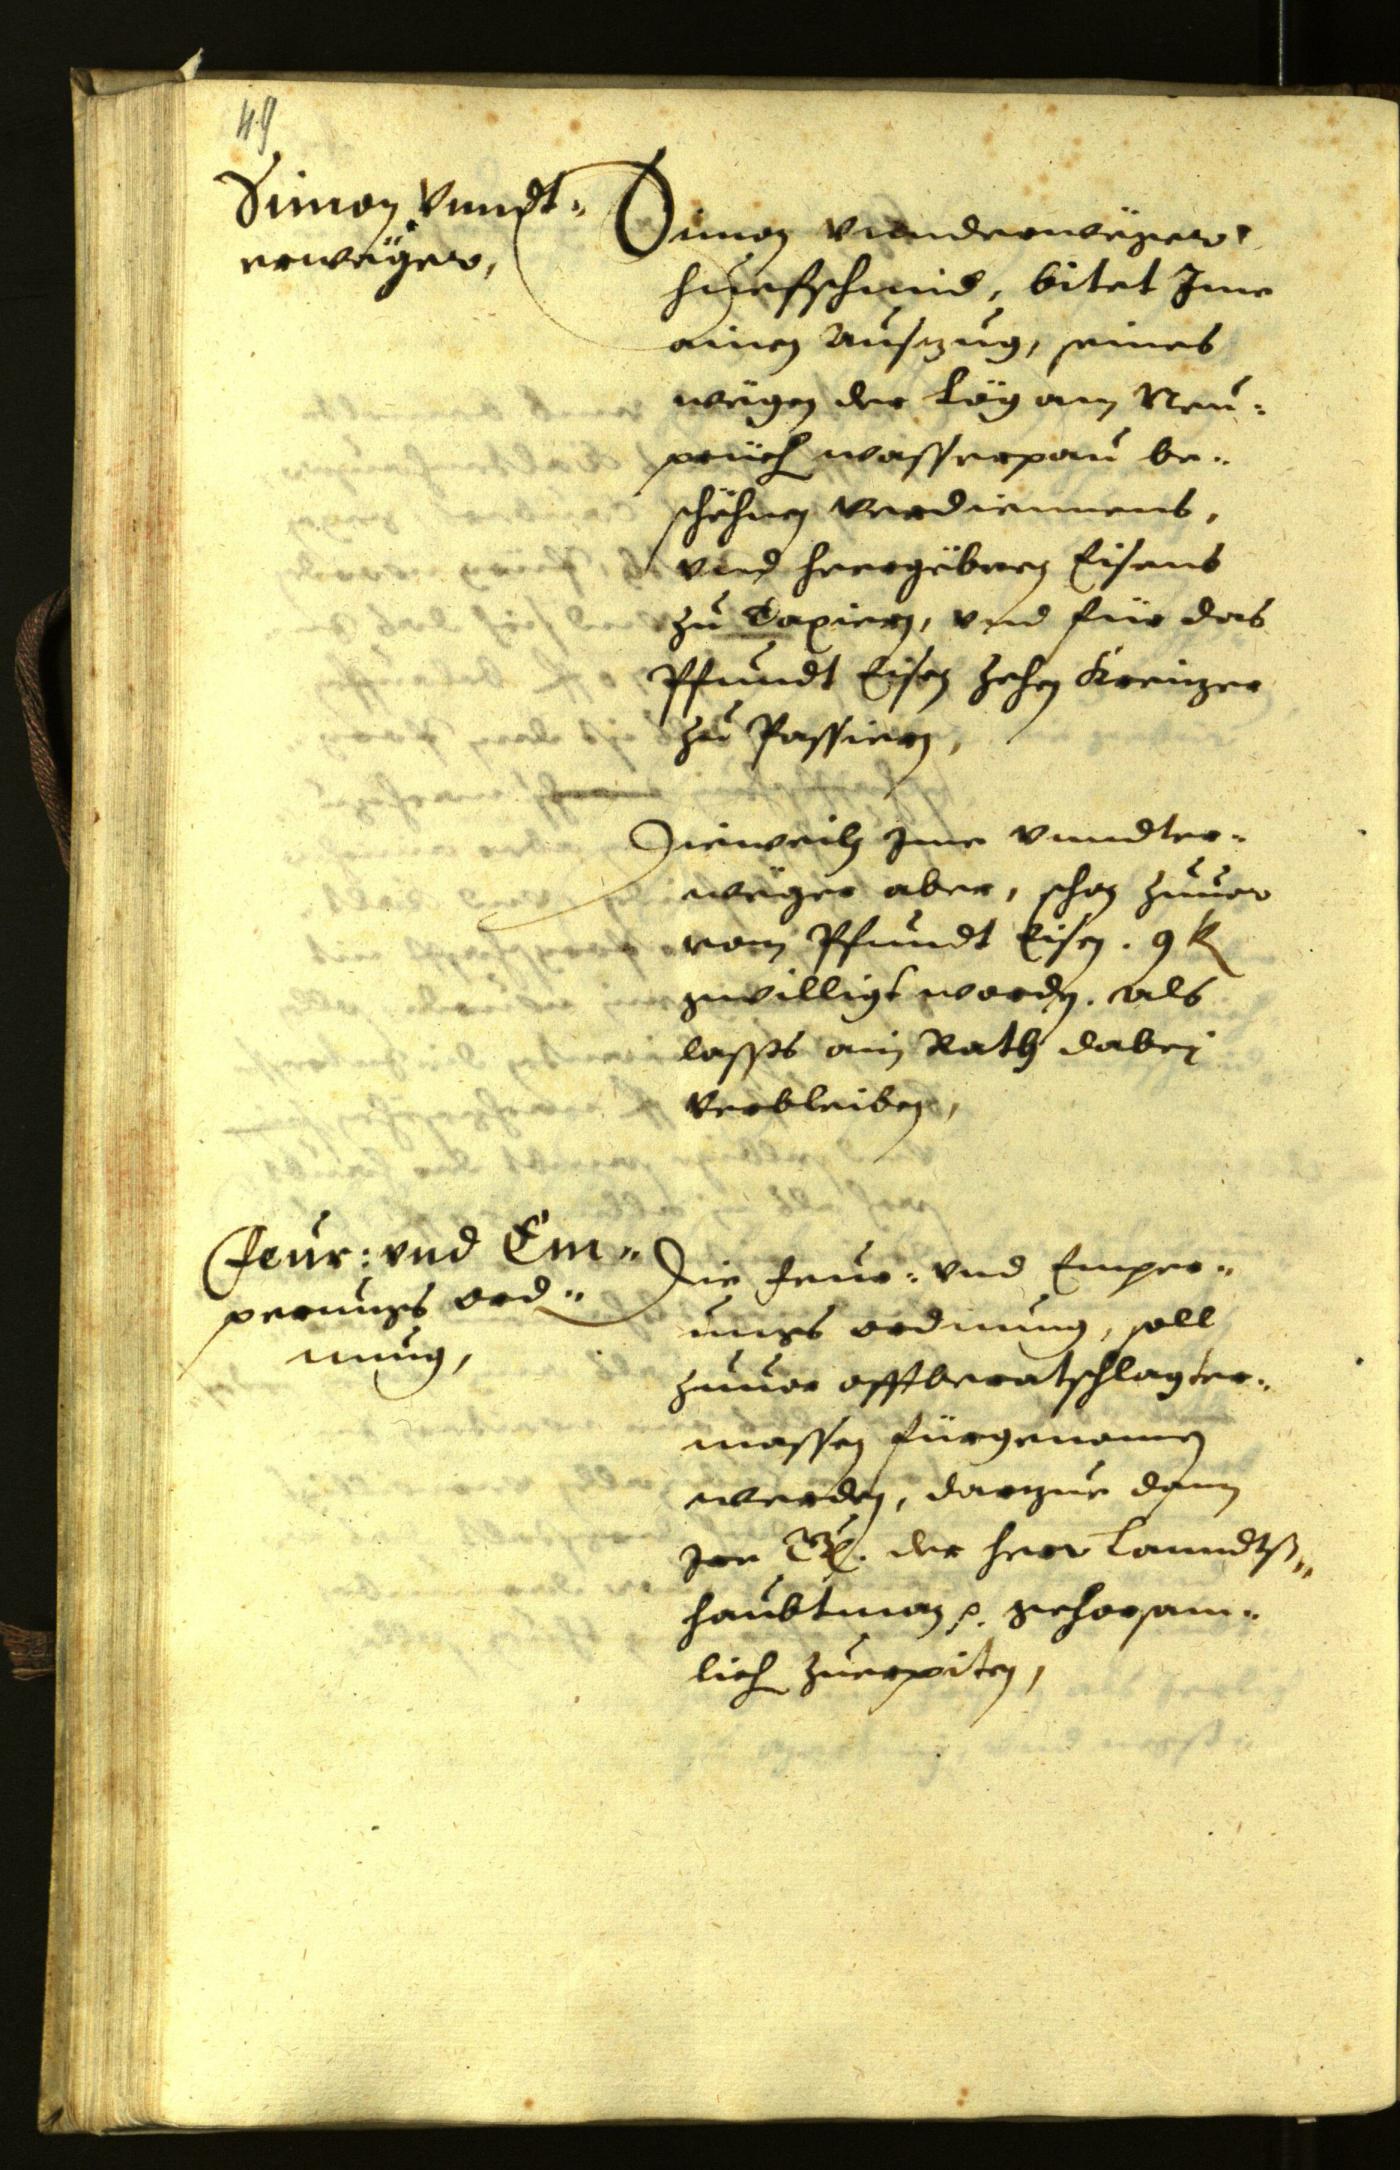 49
Simon Vundt-
erweger,
Simon Vunderweger
Huefschmid, bitet Ime
ainen Auszug, seines
wegen der Leg am Neu-
pruch wasserpau be-
schehnen Verdiennens,
vnd heergebnen Eisens
zu Taxiern, vnd für das
Pfundt Eisen zehen Kreuzer
zu Passiern,
Dieweiln Ime Vundter-
weger aber, schon zuuor
vom Pfundt Eisen. 9 k
gewilligt worden. als
lassts ain Rath dabej
Verbleiben,
Feur: vnd Em-
perungs ord-
nung,
Die Feur- vnd Emper-
ungs ordnung, soll
zuuor offtberatschlagter-
massen fürgenomen
werden, darzue dann
Ire der Herr Lanndtß-
haubtman gehorsam-
lich zuerpiten,